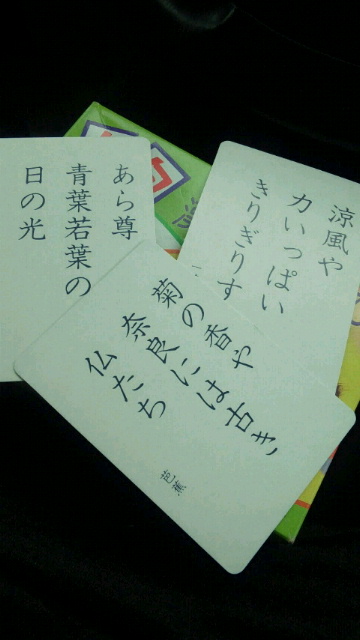 あら尊
青葉若葉の
日の光
涼風や
力いっぱい
きりぎりす
菊の香や
奈良には古き
仏たち
芭蕉